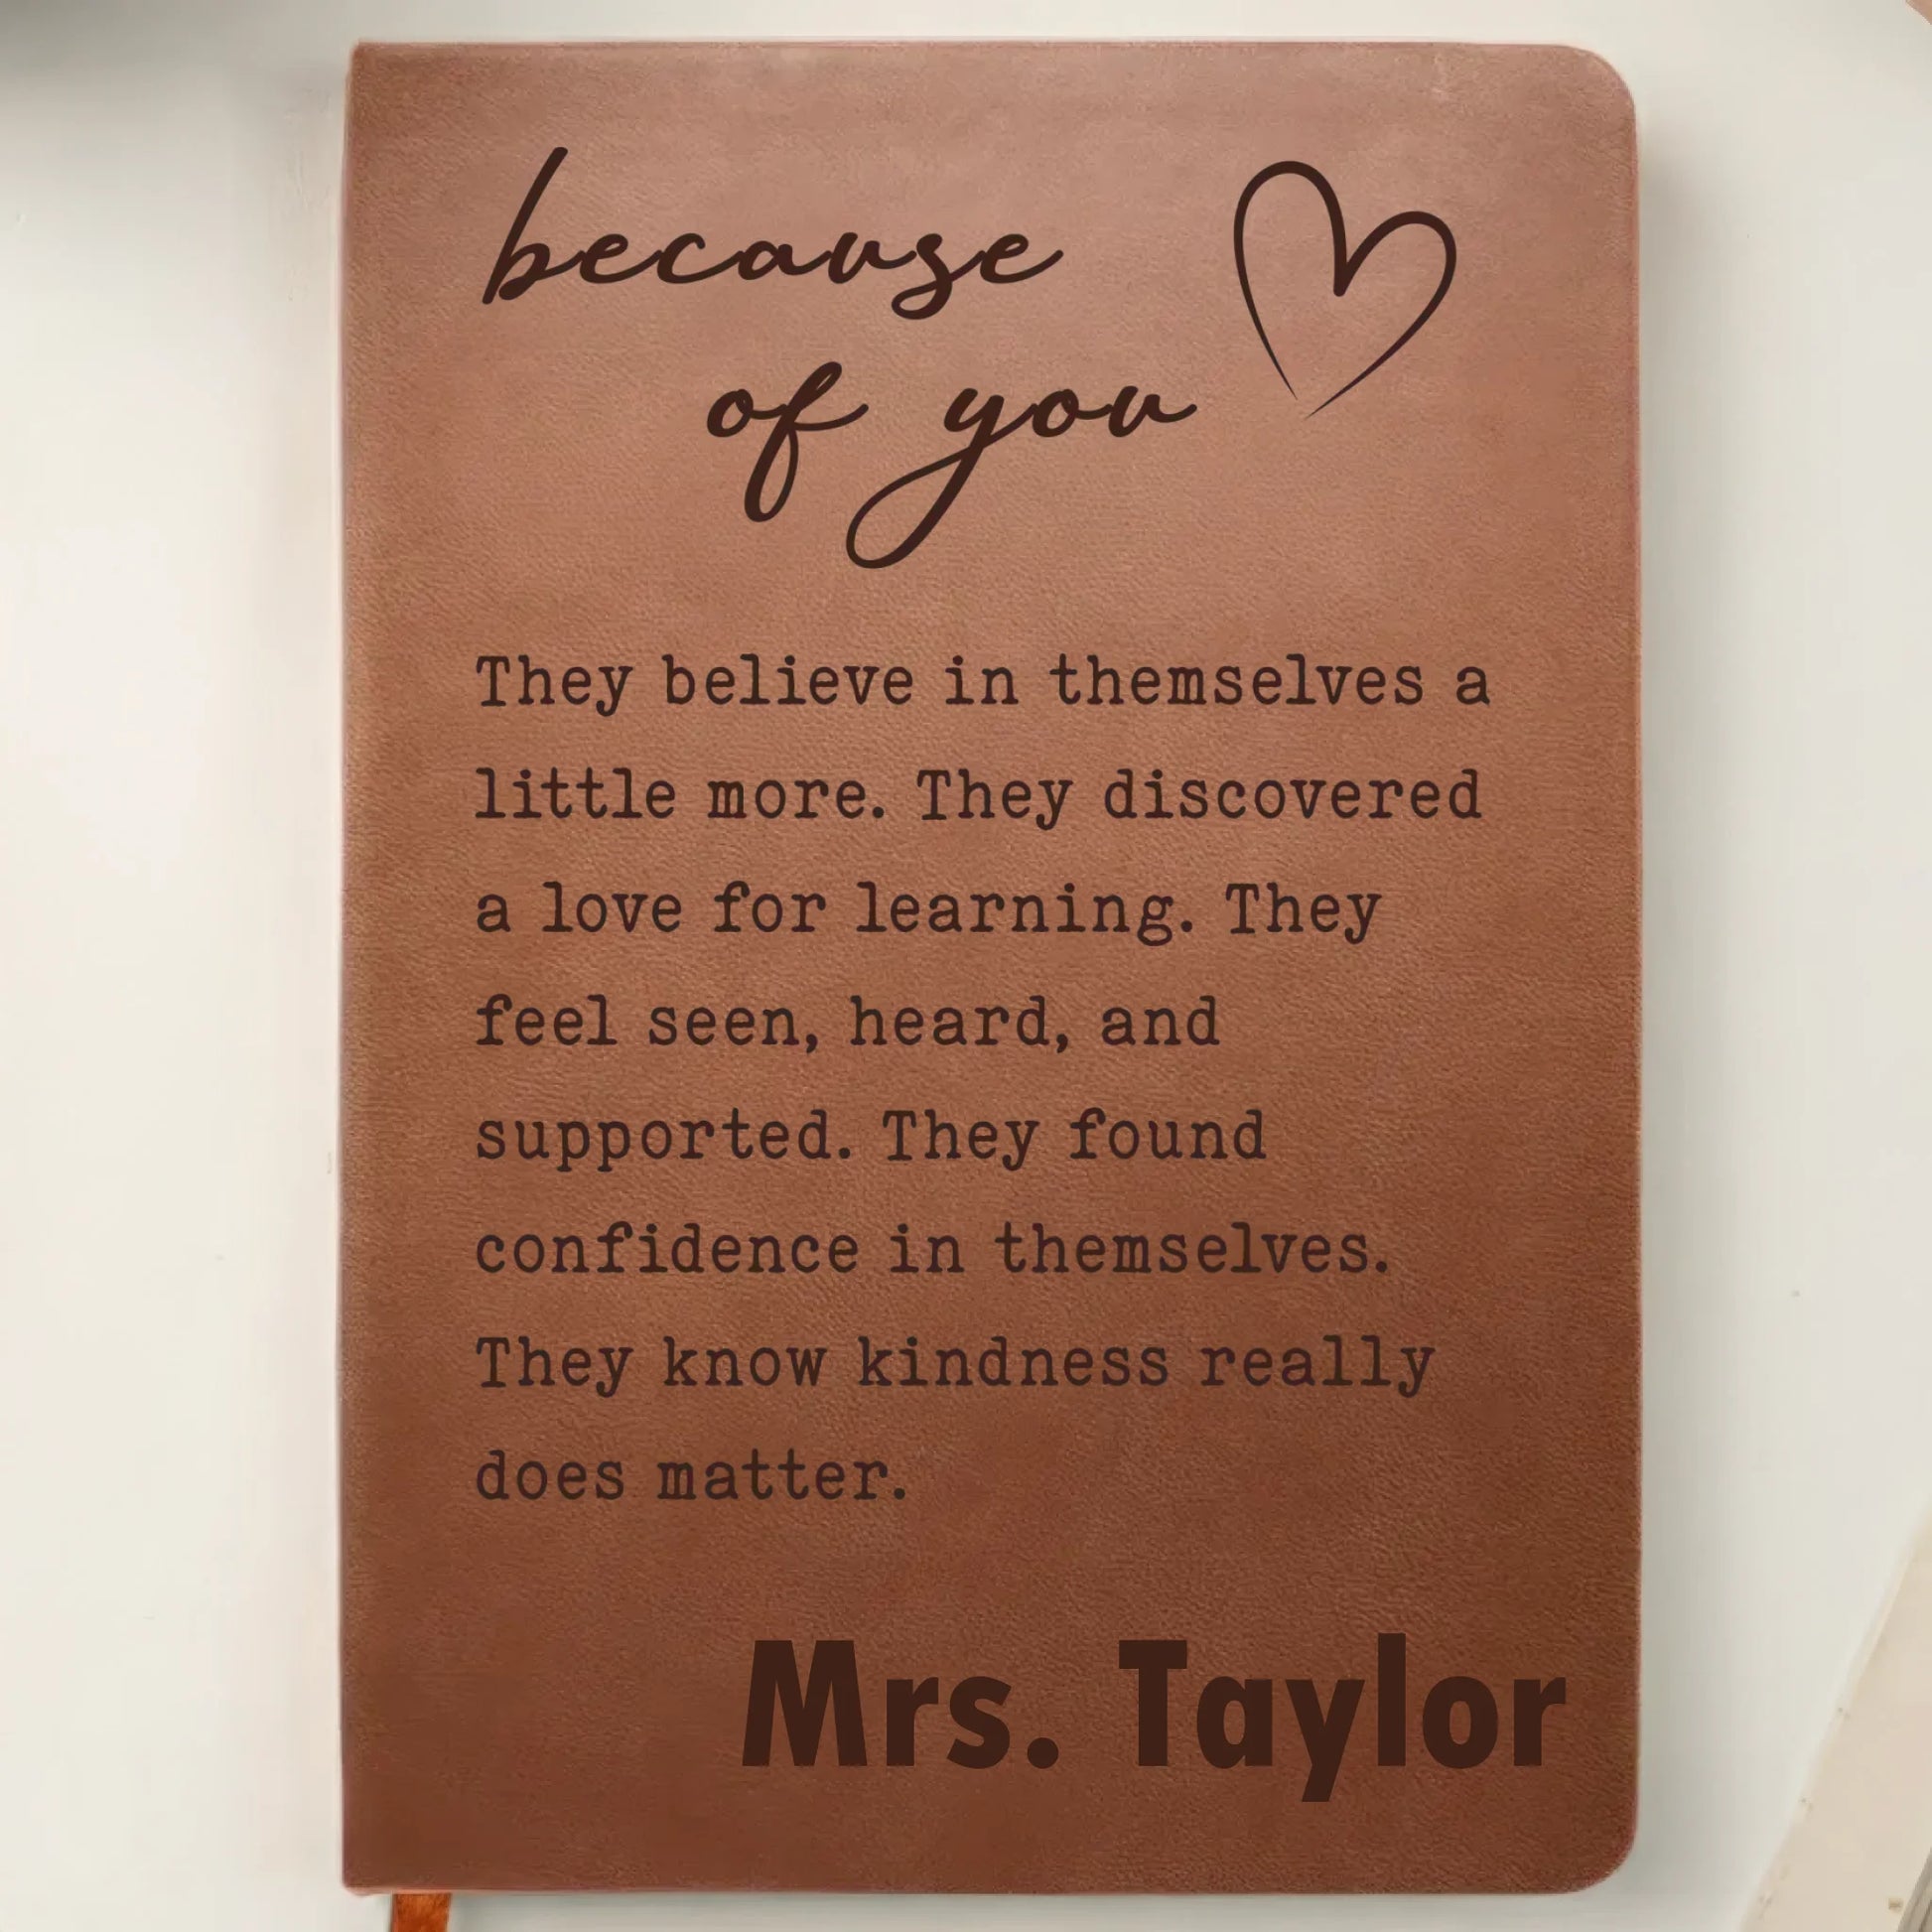 because
of you
They believe in themselves a
little more. They discovered
a love for learning. They
feel seen, heard, and
supported. They found
confidence in themselves.
They know kindness really
does matter.
Mrs. Taylor